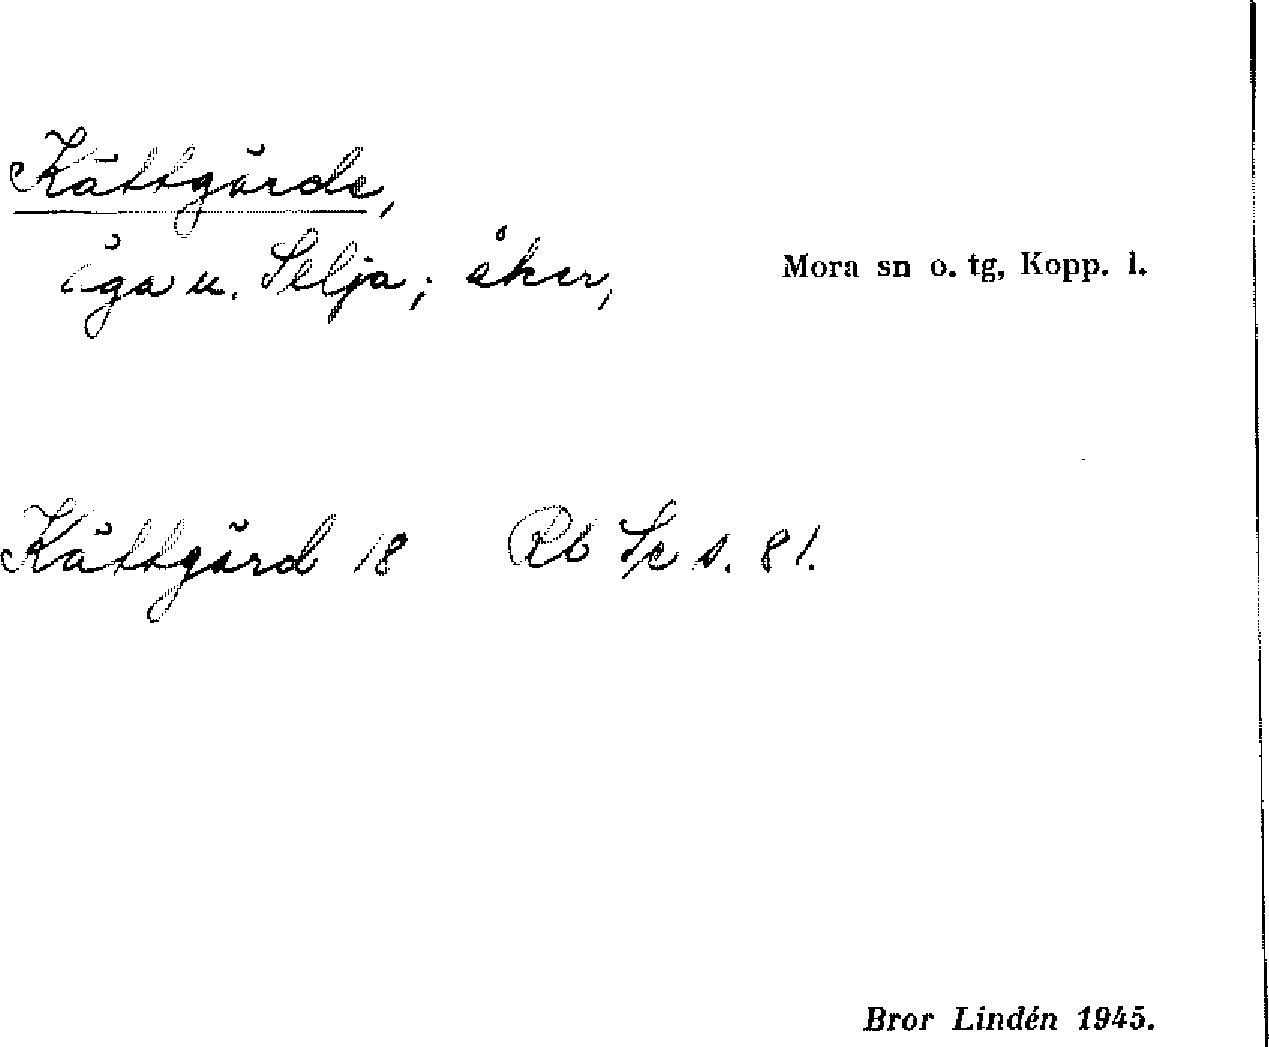 Kättgärde,
äga u. Selja; åker,
Mora sn o. tg, Kopp. l.
Kättgärd 18 Rb Se s. 81.
Bror Lindén 1945.